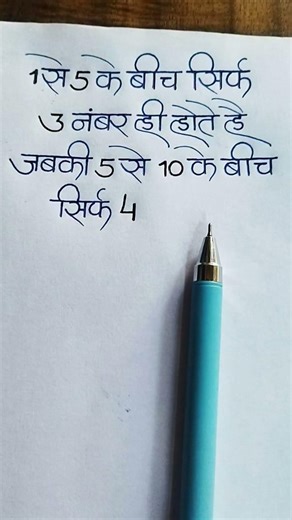 1 से 5 के बीच सिर्फ
3 नंबर ही होते है
जबकी 5 से 10 के बीच
सिर्फ 4